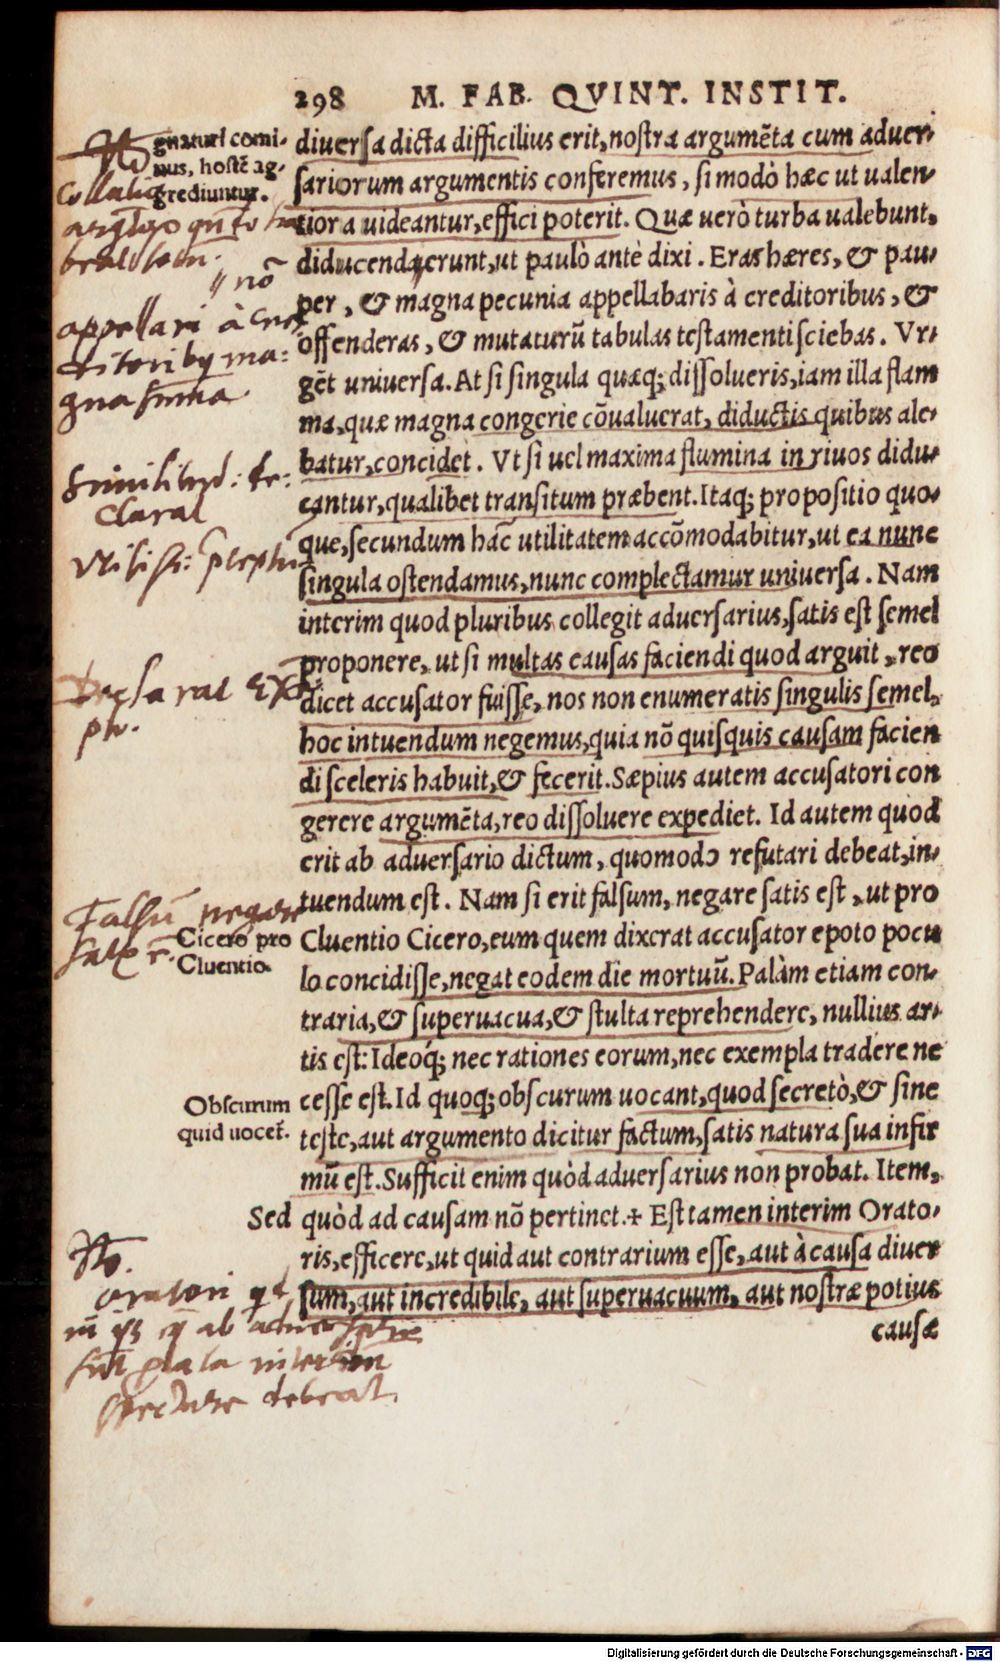 298 M. FAB. QVINT. INSTIT.
gnaturi comi-
nus, hostē ag-
grediuntur.
diuersa dicta difficilius erit, nostra argumēta cum aduer-
sariorum argumentis conferemus, si modò hæc ut ualen-
tiora uideantur, effici poterit. Quæ uerò turba ualebunt,
diducenda erunt, ut paulò antè dixi. Eras hæres, & pau-
per, & magna pecunia appellabaris à creditoribus, &
offenderas, & mutaturū tabulas testamenti sciebas. Vr-
gēt uniuersa. At si singula quæq; dissolueris, iam illa flam
ma, quæ magna congerie cōualuerat, diductis quibus ale-
batur, concidet. Vt si uel maxima flumina in riuos didu-
cantur, qualibet transitum præbent. Itaq; propositio quo-
que, secundum hāc utilitatem accōmodabitur, ut ea nunc
singula ostendamus, nunc complectamur uniuersa. Nam
interim quod pluribus collegit aduersarius, satis est semel
proponere, ut si multas causas faciendi quod arguit, reo
dicet accusator fuisse, nos non enumeratis singulis semel,
hoc intuendum negemus, quia nō quisquis causam facien
di sceleris habuit, & fecerit. Sæpius autem accusatori con
gerere argumēta, reo dissoluere expediet. Id autem quod
erit ab aduersario dictum, quomodo refutari debeat, in-
tuendum est. Nam si erit falsum, negare satis est, ut pro
Cluentio Cicero, eum quem dixerat accusator epoto pocu
lo concidisse, negat eodem die mortuū. Palàm etiam con-
traria, & superuacua, & stulta reprehendere, nullius ar-
tis est: Ideoq́; nec rationes eorum, nec exempla tradere ne
cesse est. Id quoq; obscurum uocant, quod secretò, & sine
teste, aut argumento dicitur factum, satis natura sua infir
mū est. Sufficit enim quòd aduersarius non probat. Item,
Sed quòd ad causam nō pertinet.+ Est tamen interim Orato-
ris, efficere, ut quid aut contrarium esse, aut à causa diuer
sum, aut incredibile, aut superuacuum, aut nostræ potius
causæ
Collatio
nō
appellari à cre-
ditoribus ma-
gna summa
Similitud: de-
clarat
Declarat ex-
Falsū negare
Cicero pro
Cluentio.
Obscurum
quid uocet̄.
No.
debeat.
Digitalisierung gefördert durch die Deutsche Forschungsgemeinschaft - DFG